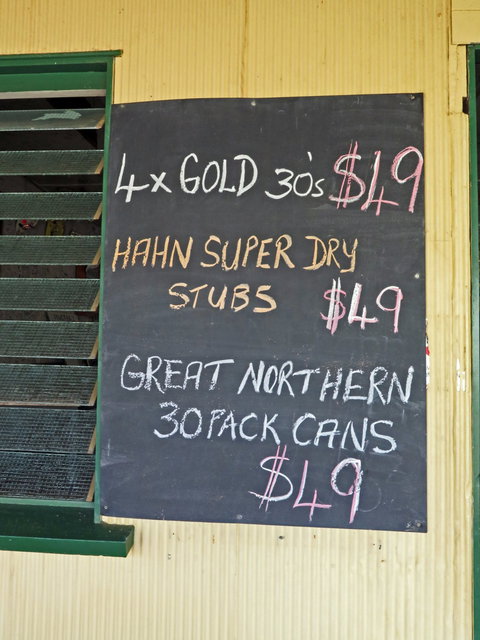 4x GOLD 30's $49
HAHN SUPER DRY
STUBS $49
GREAT NORTHERN
30 PACK CANS
$49